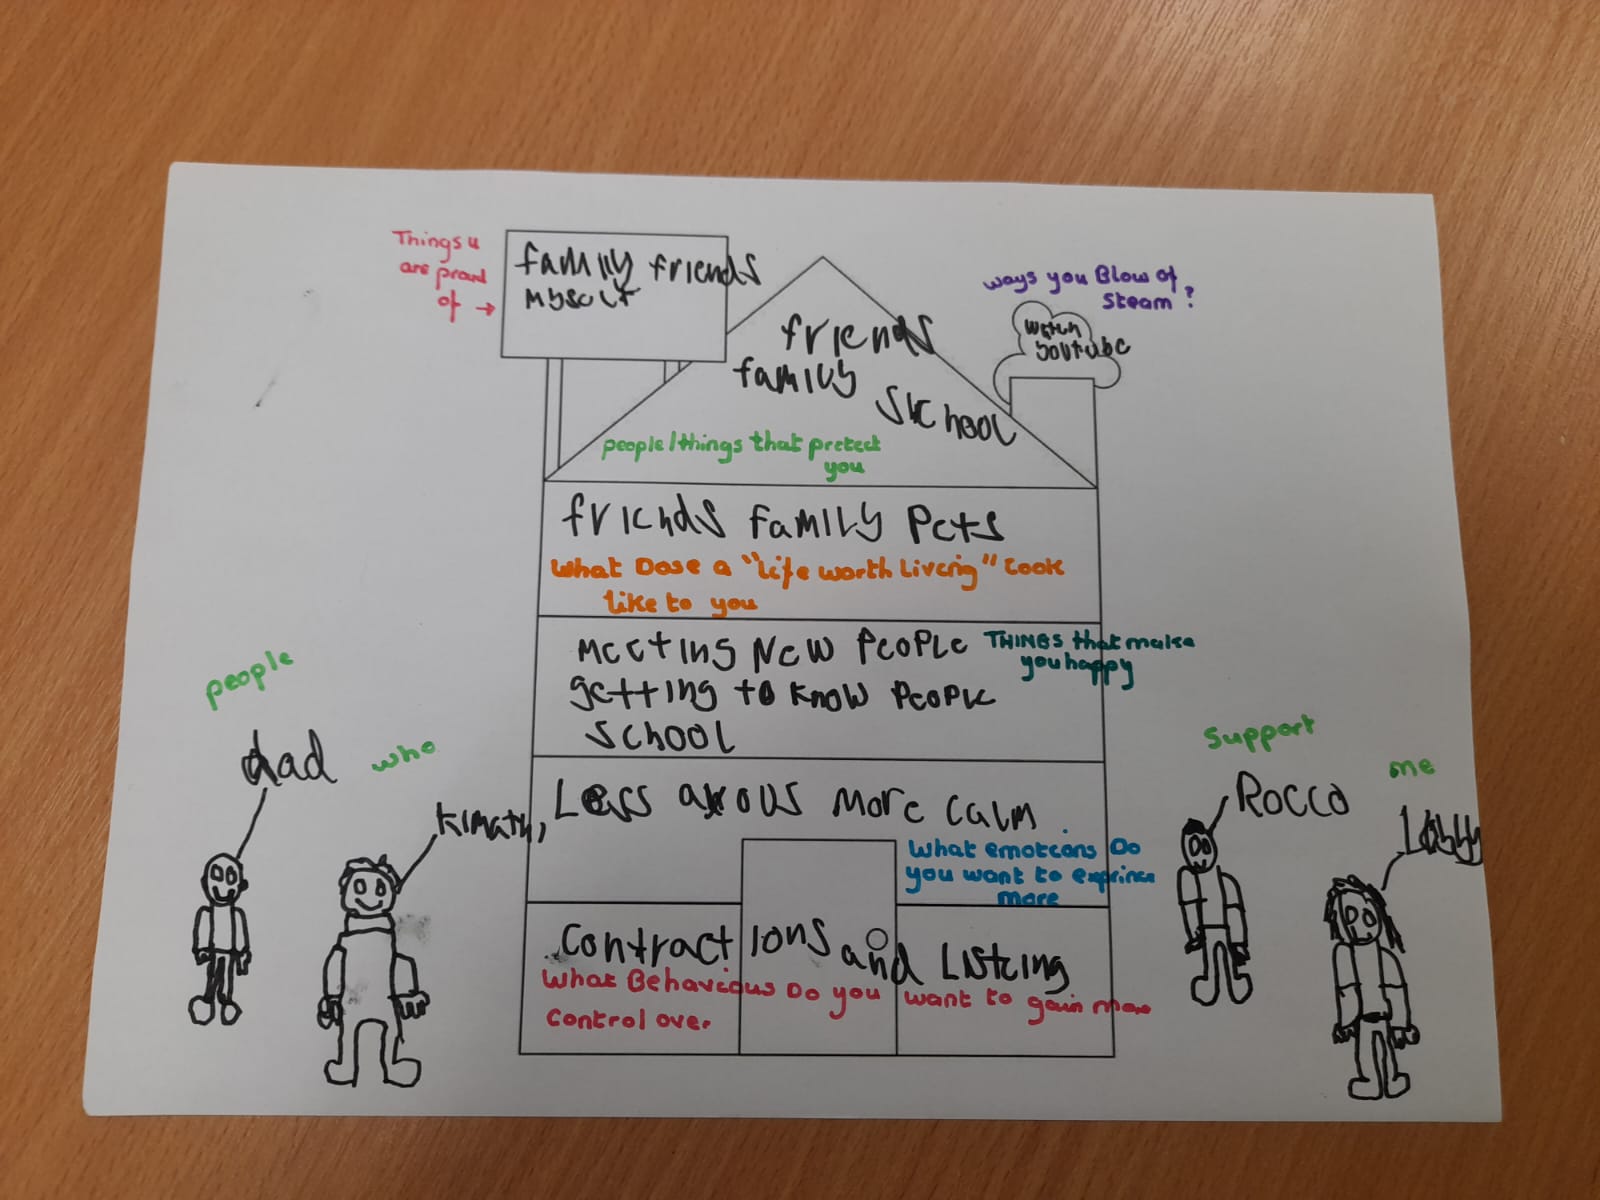 Things u
are proud
of →
family friends
myself
ways you Blow of
Steam ?
Watch
youtube
friends
family
SKchool
people/things that pretect
you
friends Family Pets
What Dose a "life worth Living" Look
like to you
Meeting New People
getting to know People
School
THINGS that make
you happy
Less axous More calm
What emotions Do
you want to exprince
more
Contractions and Listcing
What Behavious Do you want to gain more
control over.
people
dad
who
support
Rocco
me